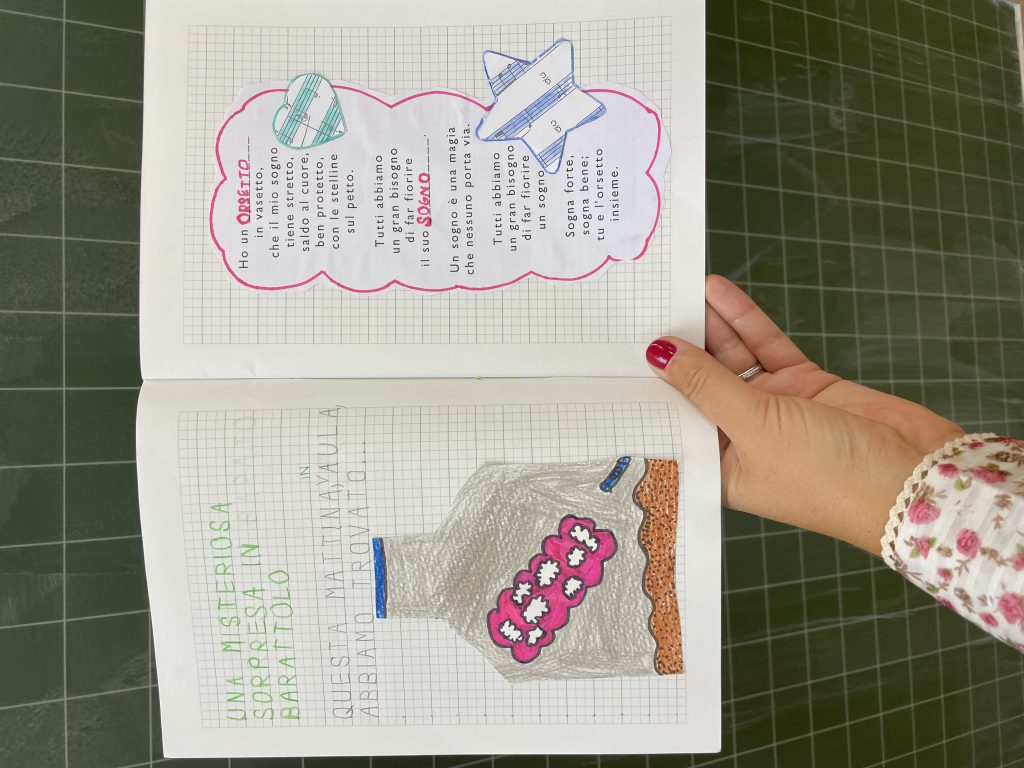 UNA MISTERIOSA
SORPRESA IN
BARATTOLO
QUESTA MATTINA, IN AULA,
ABBIAMO TROVATO...
Ho un ORSETTO
in vasetto,
che il mio sogno
tiene stretto,
saldo al cuore,
ben protetto,
con le stelline
sul petto.
Tutti abbiamo
un gran bisogno
di far fiorire
il suo SOGNO.
Un sogno è una magia
che nessuno porta via.
Tutti abbiamo
un gran bisogno
di far fiorire
un sogno
Sogna forte,
sogna bene;
tu e l'orsetto
insieme.